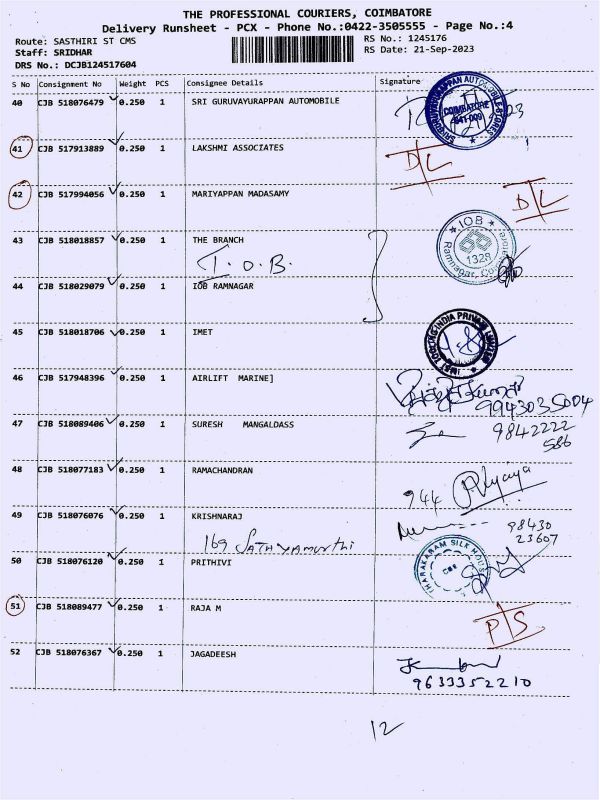 THE PROFESSIONAL COURIERS, COIMBATORE
Delivery Runsheet - PCX - Phone No.:0422-3505555 - Page No.:4
Route: SASTHIRI ST CMS RS No.: 1245176
Staff: SRIDHAR RS Date: 21-Sep-2023
DRS No.: DCJB124517604
S No Consignment No Weight PCS Consignee Details Signature
40 CJB 518076479 0.250 1 SRI GURUVAYURAPPAN AUTOMOBILE
COIMBATORE
641-009
41 CJB 517913889 0.250 1 LAKSHMI ASSOCIATES D/L
42 CJB 517994056 0.250 1 MARIYAPPAN MADASAMY D/L
43 CJB 518018857 0.250 1 THE BRANCH
I.O.B. IOB 1328 Ramnagar,
44 CJB 518029079 0.250 1 IOB RAMNAGAR
45 CJB 518018706 0.250 1 IMET
46 CJB 517948396 0.250 1 AIRLIFT MARINE]
9943035004
47 CJB 518089406 0.250 1 SURESH MANGALDASS 9842222
586
48 CJB 518077183 0.250 1 RAMACHANDRAN
944
49 CJB 518076076 0.250 1 KRISHNARAJ 98430
169 Sathyamurthi 23607
50 CJB 518076120 0.250 1 PRITHIVI
THARAKARAM SILK HOUSE
CBE
51 CJB 518089477 0.250 1 RAJA M P/S
52 CJB 518076367 0.250 1 JAGADEESH
9633352210
12